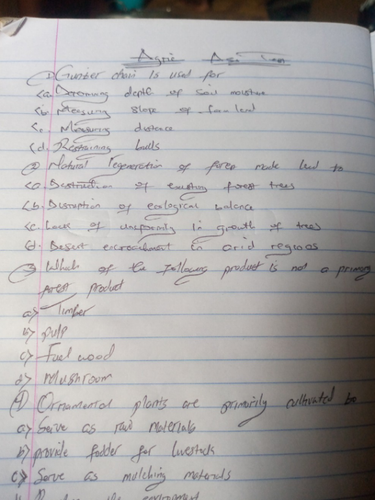 Agric
① Gunter chain is used for
(a. Determining depth of soil moisture
(b. Measuring slope of farm land
(c. Measuring distance
(d. Restraining bulls
② Natural regeneration of forest lead to
(a. Destruction of existing forest trees
(b. Disruption of ecological balance
(c. Lack of uniformity in growth of trees
(d. Desert encroachment in arid regions
③ Which of the following product is not a primary
forest product
a) Timber
b) pulp
c) Fuel wood
d) Mushroom
④ Ornamental plants are primarily cultivated to
a) Serve as raw materials
b) provide fodder for livestock
c) Serve as mulching materials